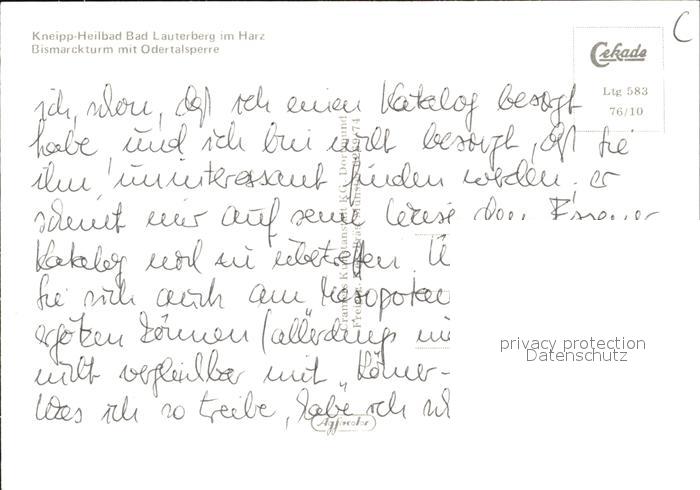 Kneipp-Heilbad Bad Lauterberg im Harz
Bismarckturm mit Odertalsperre
C
Cekade
Ltg 583
76/10
ich schon, daß ich einen Katalog besorgt
habe, und ich bin nicht besorgt, daß Sie
ihn uninteressant finden werden: er
scheint mir auf seine Weise den
Katalog noch zu übertreffen. Ü
Sie sich auch am Mesopotam
ergötzen können (allerdings
nicht vergleichbar mit „Römer-
Was ich so treibe, habe ich
Cramers Kunstanstalt KG, Dortmund
Agfacolor
privacy protection
Datenschutz